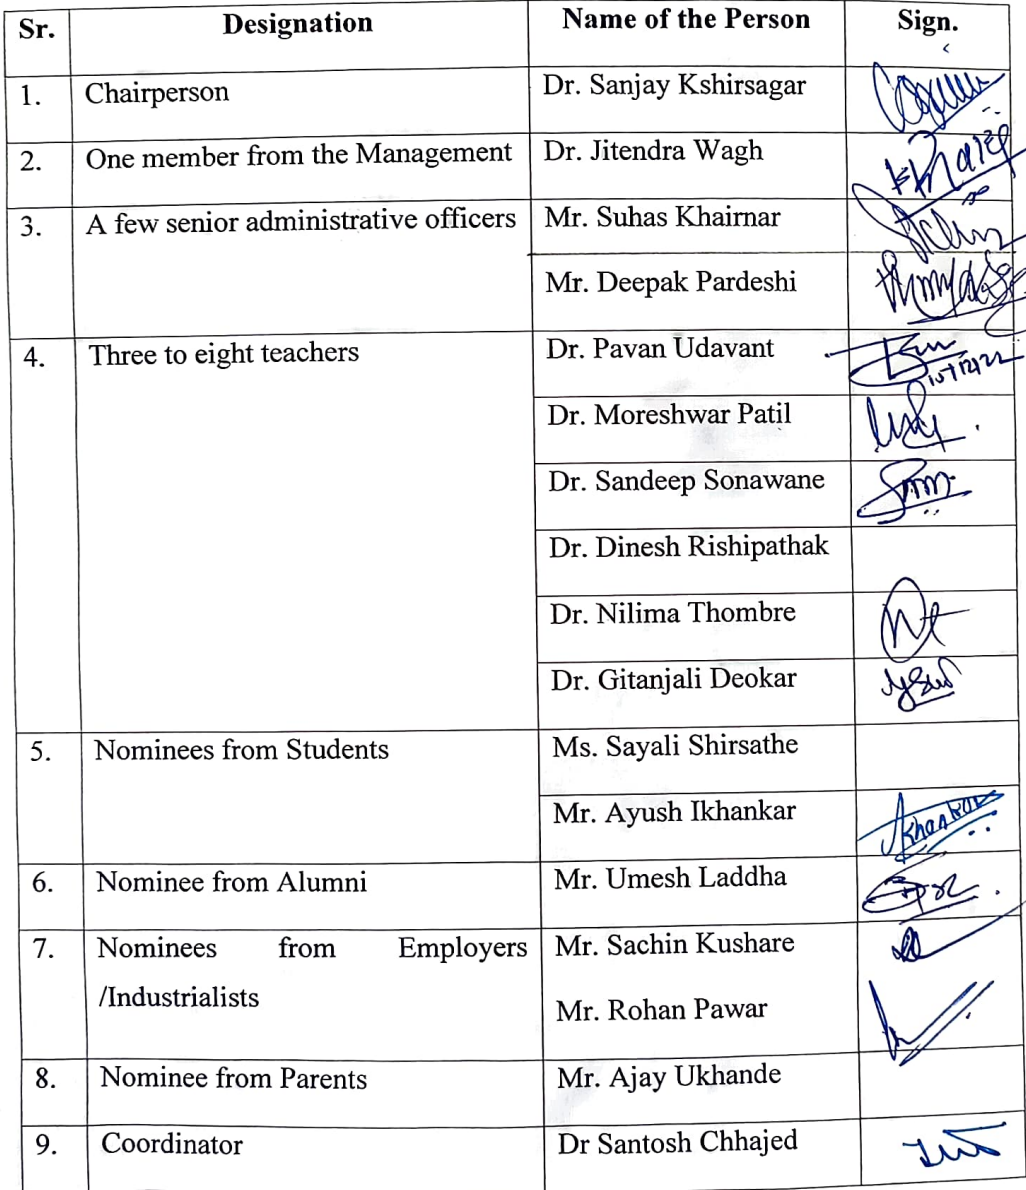 Sr. Designation Name of the Person Sign.
1. Chairperson Dr. Sanjay Kshirsagar
2. One member from the Management Dr. Jitendra Wagh
3. A few senior administrative officers Mr. Suhas Khairnar
Mr. Deepak Pardeshi
4. Three to eight teachers Dr. Pavan Udavant
10/12/22
Dr. Moreshwar Patil
Dr. Sandeep Sonawane
Dr. Dinesh Rishipathak
Dr. Nilima Thombre
Dr. Gitanjali Deokar
5. Nominees from Students Ms. Sayali Shirsathe
Mr. Ayush Ikhankar
6. Nominee from Alumni Mr. Umesh Laddha
7. Nominees from Employers Mr. Sachin Kushare
/Industrialists
Mr. Rohan Pawar
8. Nominee from Parents Mr. Ajay Ukhande
9. Coordinator Dr Santosh Chhajed